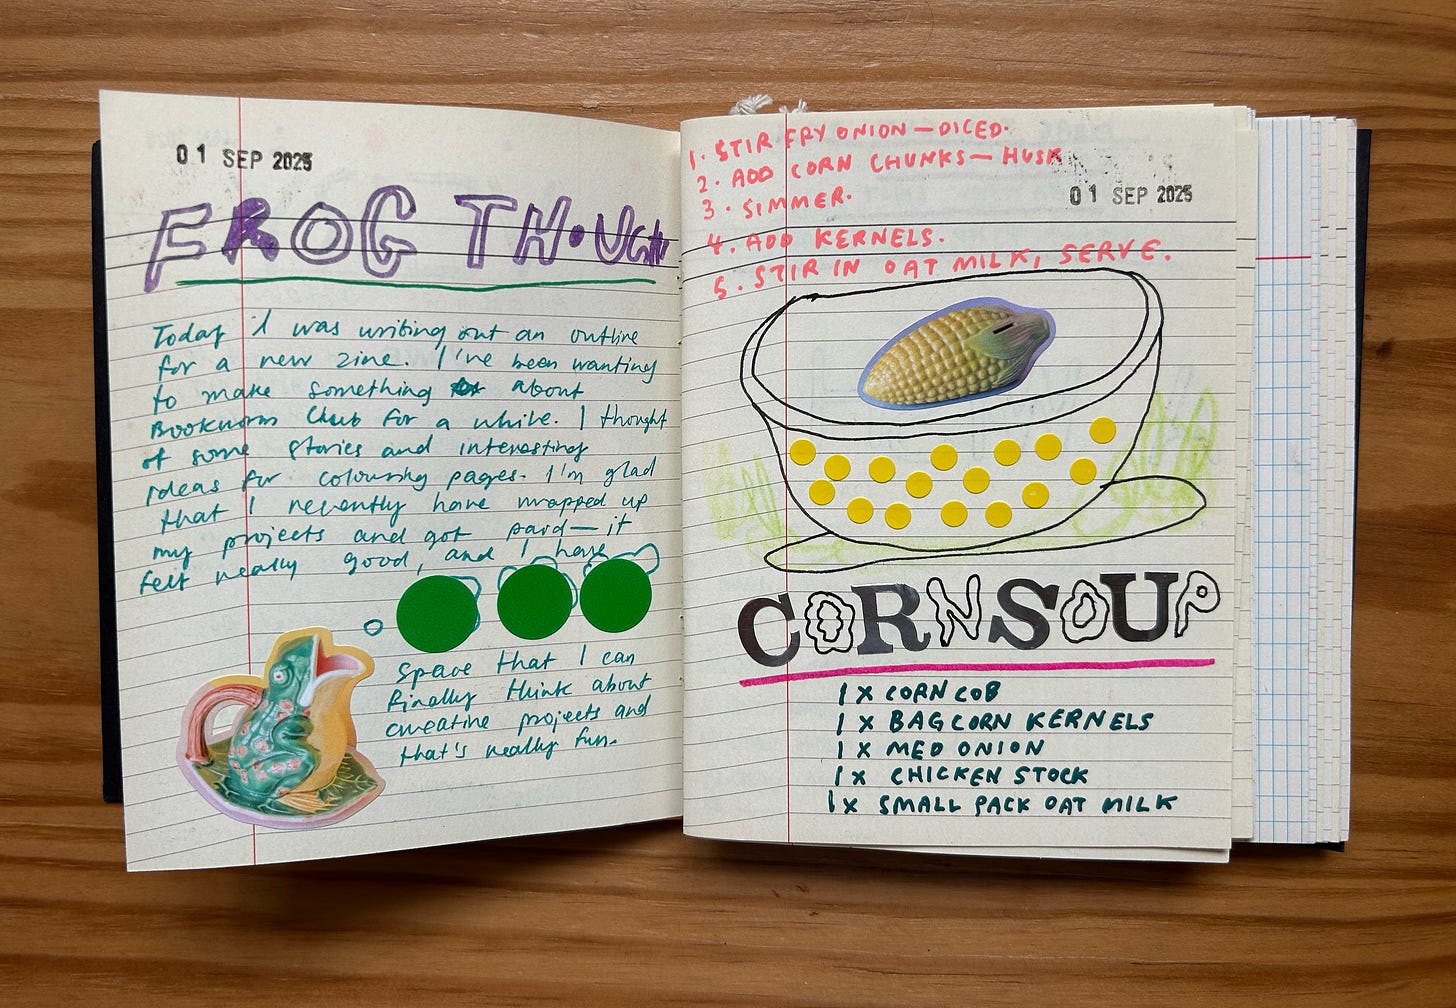 01 SEP 2025
FROG THOUGHT
Today I was writing out an outline
for a new zine. I've been wanting
to make something about
Bookworm Club for a while. I thought
of some stories and interesting
ideas for colouring pages. I'm glad
that I recently have wrapped up
my projects and got paid — it
felt really good, and I have
space that I can
finally think about
creative projects and
that's really fun.
1. STIR FRY ONION — DICED.
2. ADD CORN CHUNKS — HUSK
3. SIMMER.
01 SEP 2025
4. ADD KERNELS.
5. STIR IN OAT MILK, SERVE.
CORN SOUP
1 X CORN COB
1 X BAG CORN KERNELS
1 X MED ONION
1 X CHICKEN STOCK
1 X SMALL PACK OAT MILK